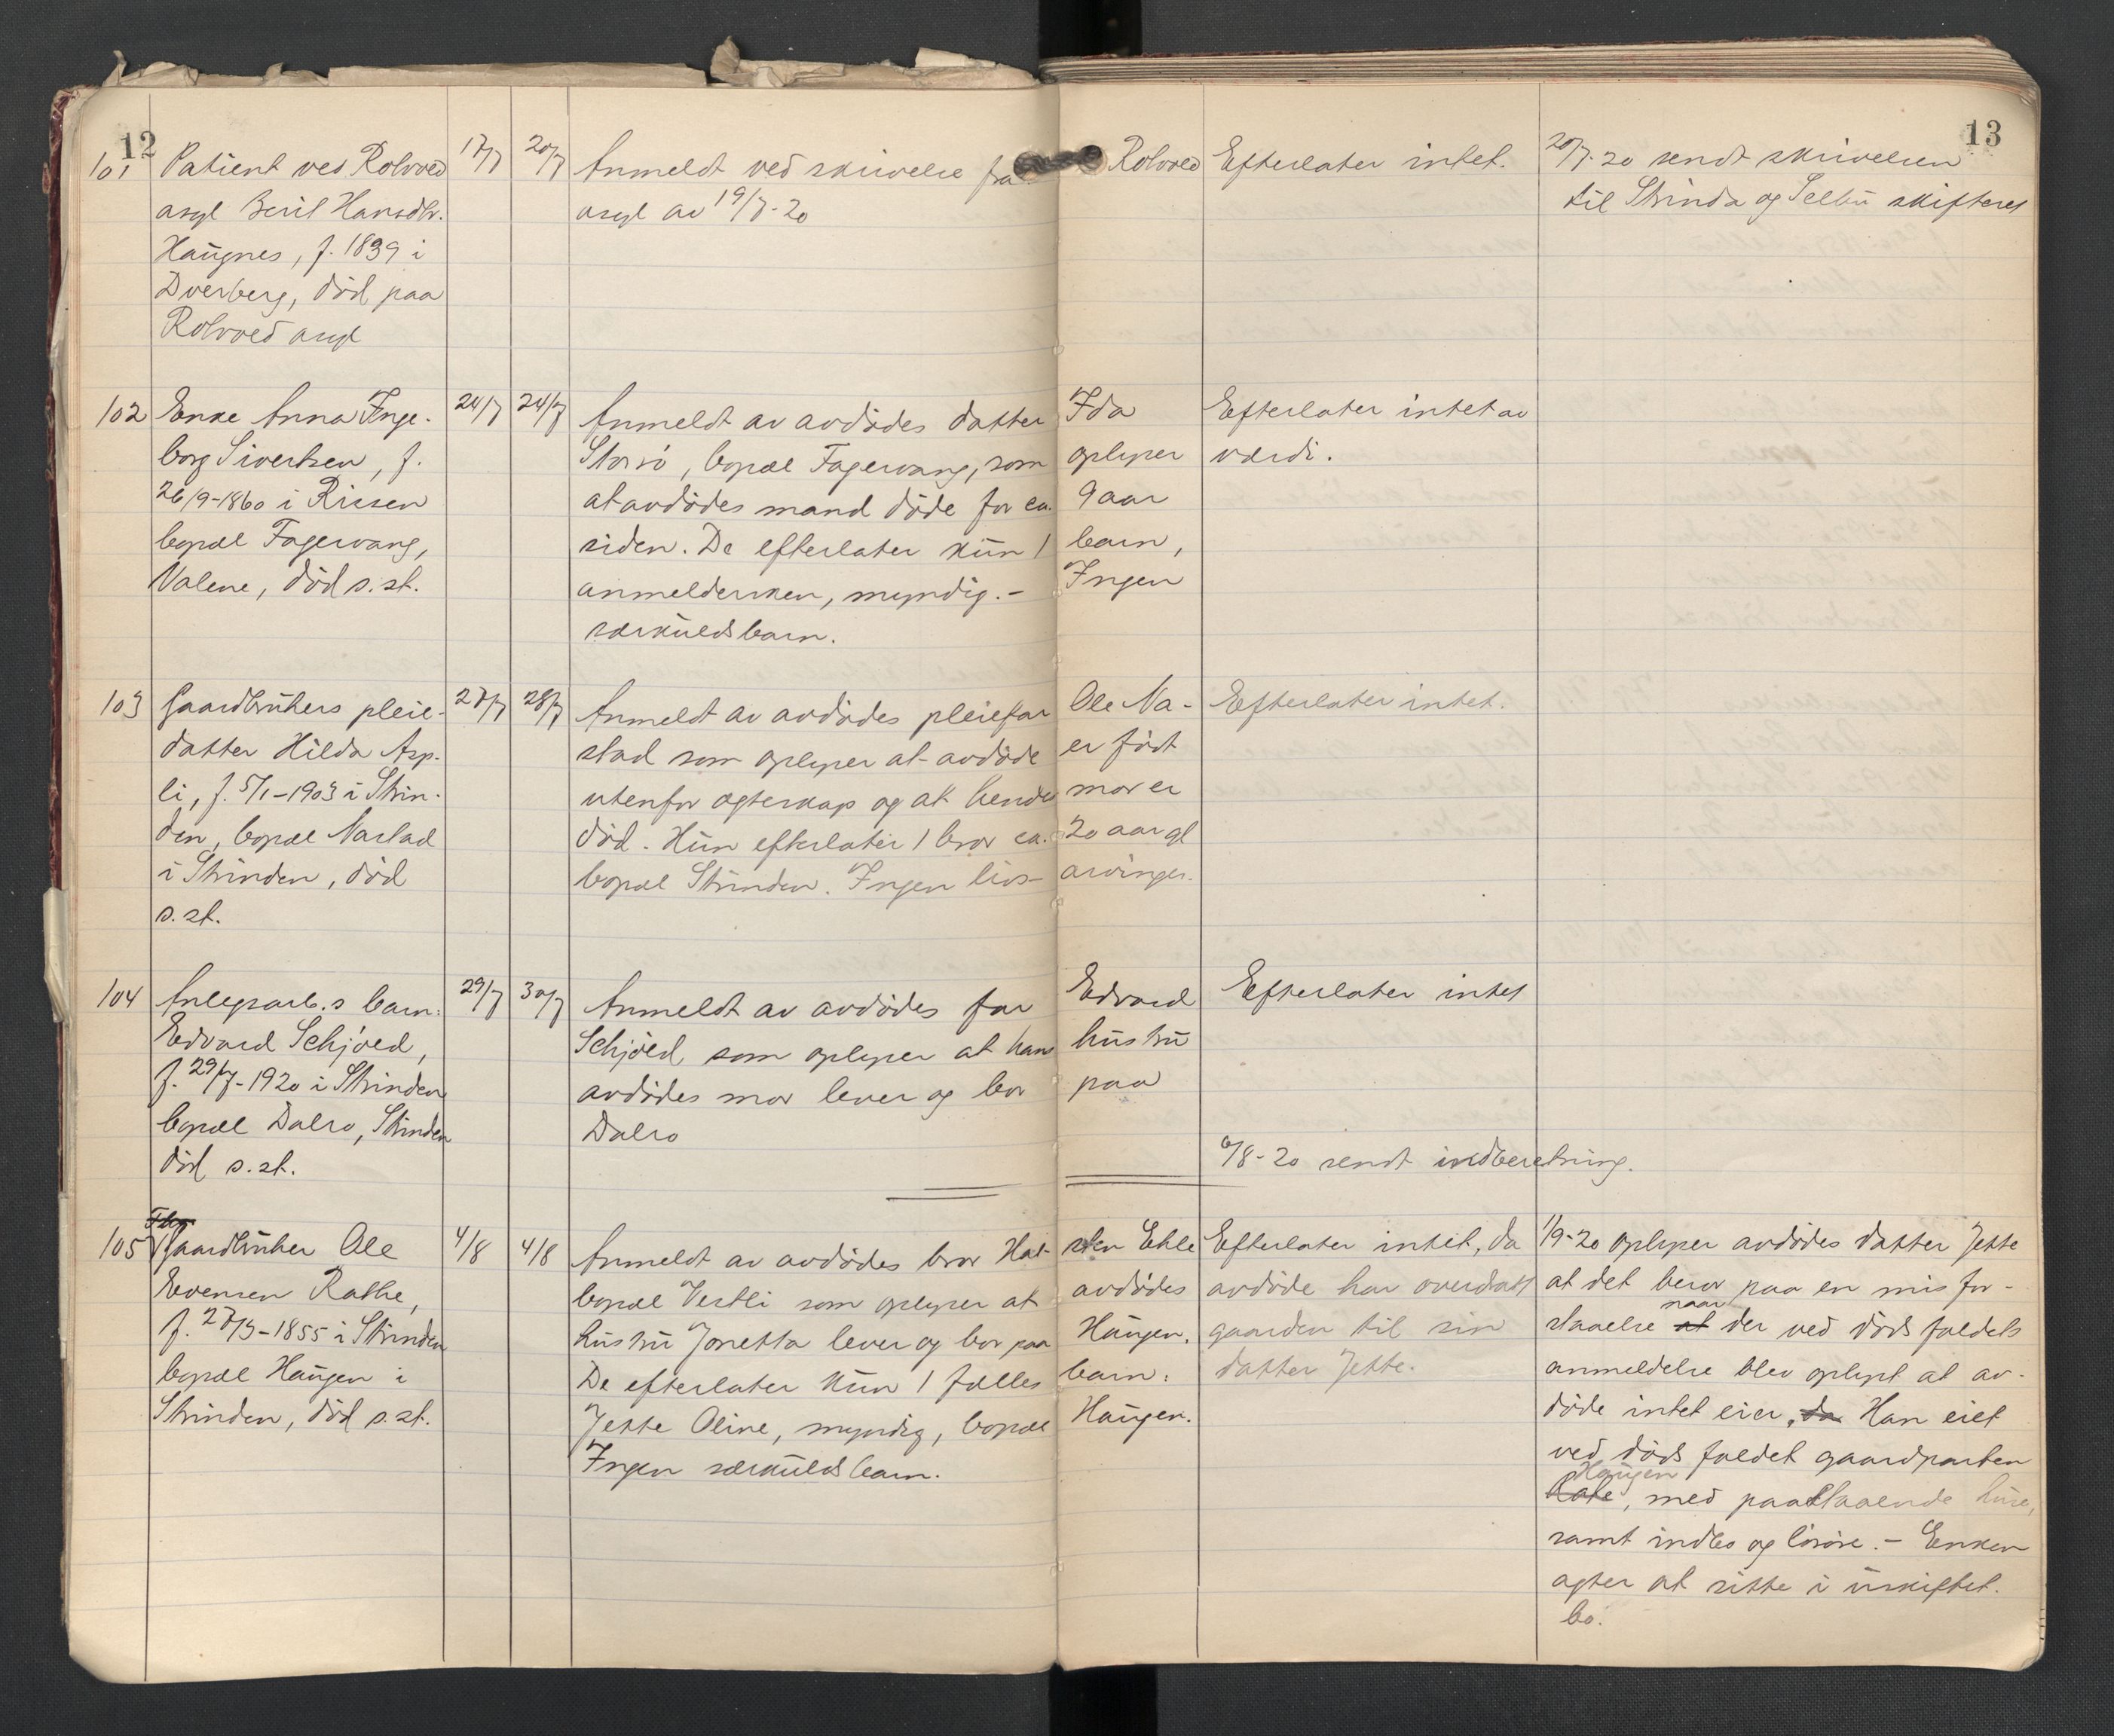 12
13
101 Patient ved Rotvoed 17/7 20/7 Anmeldt ved skrivelse fra Rotvoed Efterlater intet. 20/7-20 sendt skrivelsen
asyl Berit Hansdtr. asyl av 19/7-20 til Strinda og Selbu skifteret
Haugnes, f. 1839 i
Dverberg, död paa
Rotvoed asyl
102 Enke Anna Inge- 24/7 24/7 Anmeldt av avdödes datter Ida Efterlater intet av
borg Sivertsen, f. Storsö, bopæl Fagervang, som oplyser værdi.
26/9-1860 i Rissen at avdödes mand döde for ca. 9 aar
bopæl Fagervang, siden. De efterlater kun 1 barn,
Valene, död s.st. anmeldersken, myndig. - Ingen
særkuldsbarn.
103 Gaardbrukers pleie- 27/7 28/7 Anmeldt av avdödes pleiefar Ole Na- Efterlater intet.
datter Hilda Asp- stad som oplyser at avdöde er födt
li, f. 5/1-1903 i Strin- utenfor egteskap og at hendes mor er
den, bopæl Nastad död. Hun efterlater 1 bror ca. 20 aar gl
i Strinden, död bopæl Strinden. Ingen livs- arvinger.
s.st.
104 Anlegsarb.s barn: 29/7 30/7 Anmeldt av avdödes far Edvard Efterlater intet
Edvard Schjöed, Schjöed som oplyser at hans hustru
f. 29/7-1920 i Strinden avdödes mor lever og bor paa
bopæl Dalro, Strinden Dalro
död s.st. 6/8-20 sendt indberetning.
105 Gaardbruker Ole 4/8 4/8 Anmeldt av avdödes bror Hal- sten Ekle Efterlater intet, da 1/9-20 oplyser avdödes datter Jette
Evensen Rathe, bopæl Vestli som oplyser at avdödes avdöde har overdratt at det beror paa en misfor-
f. 27/3-1855 i Strinden hustru Jonetta lever og bor paa Haugen. gaarden til sin staaelse at naar der ved dödsfaldets
bopæl Haugen i De efterlater kun 1 fælles barn: datter Jette. anmeldelse blev oplyst at av-
Strinden, död s.st. Jette Oline, myndig, bopæl Haugen. döde intet eier, da Han eiet
Ingen særkuldsbarn. ved dödsfaldet gaardparten
Haugen
Rate, med paastaaende huse,
samt indbo og lösöre. - Enken
agter at sitte i uskiftet
bo.